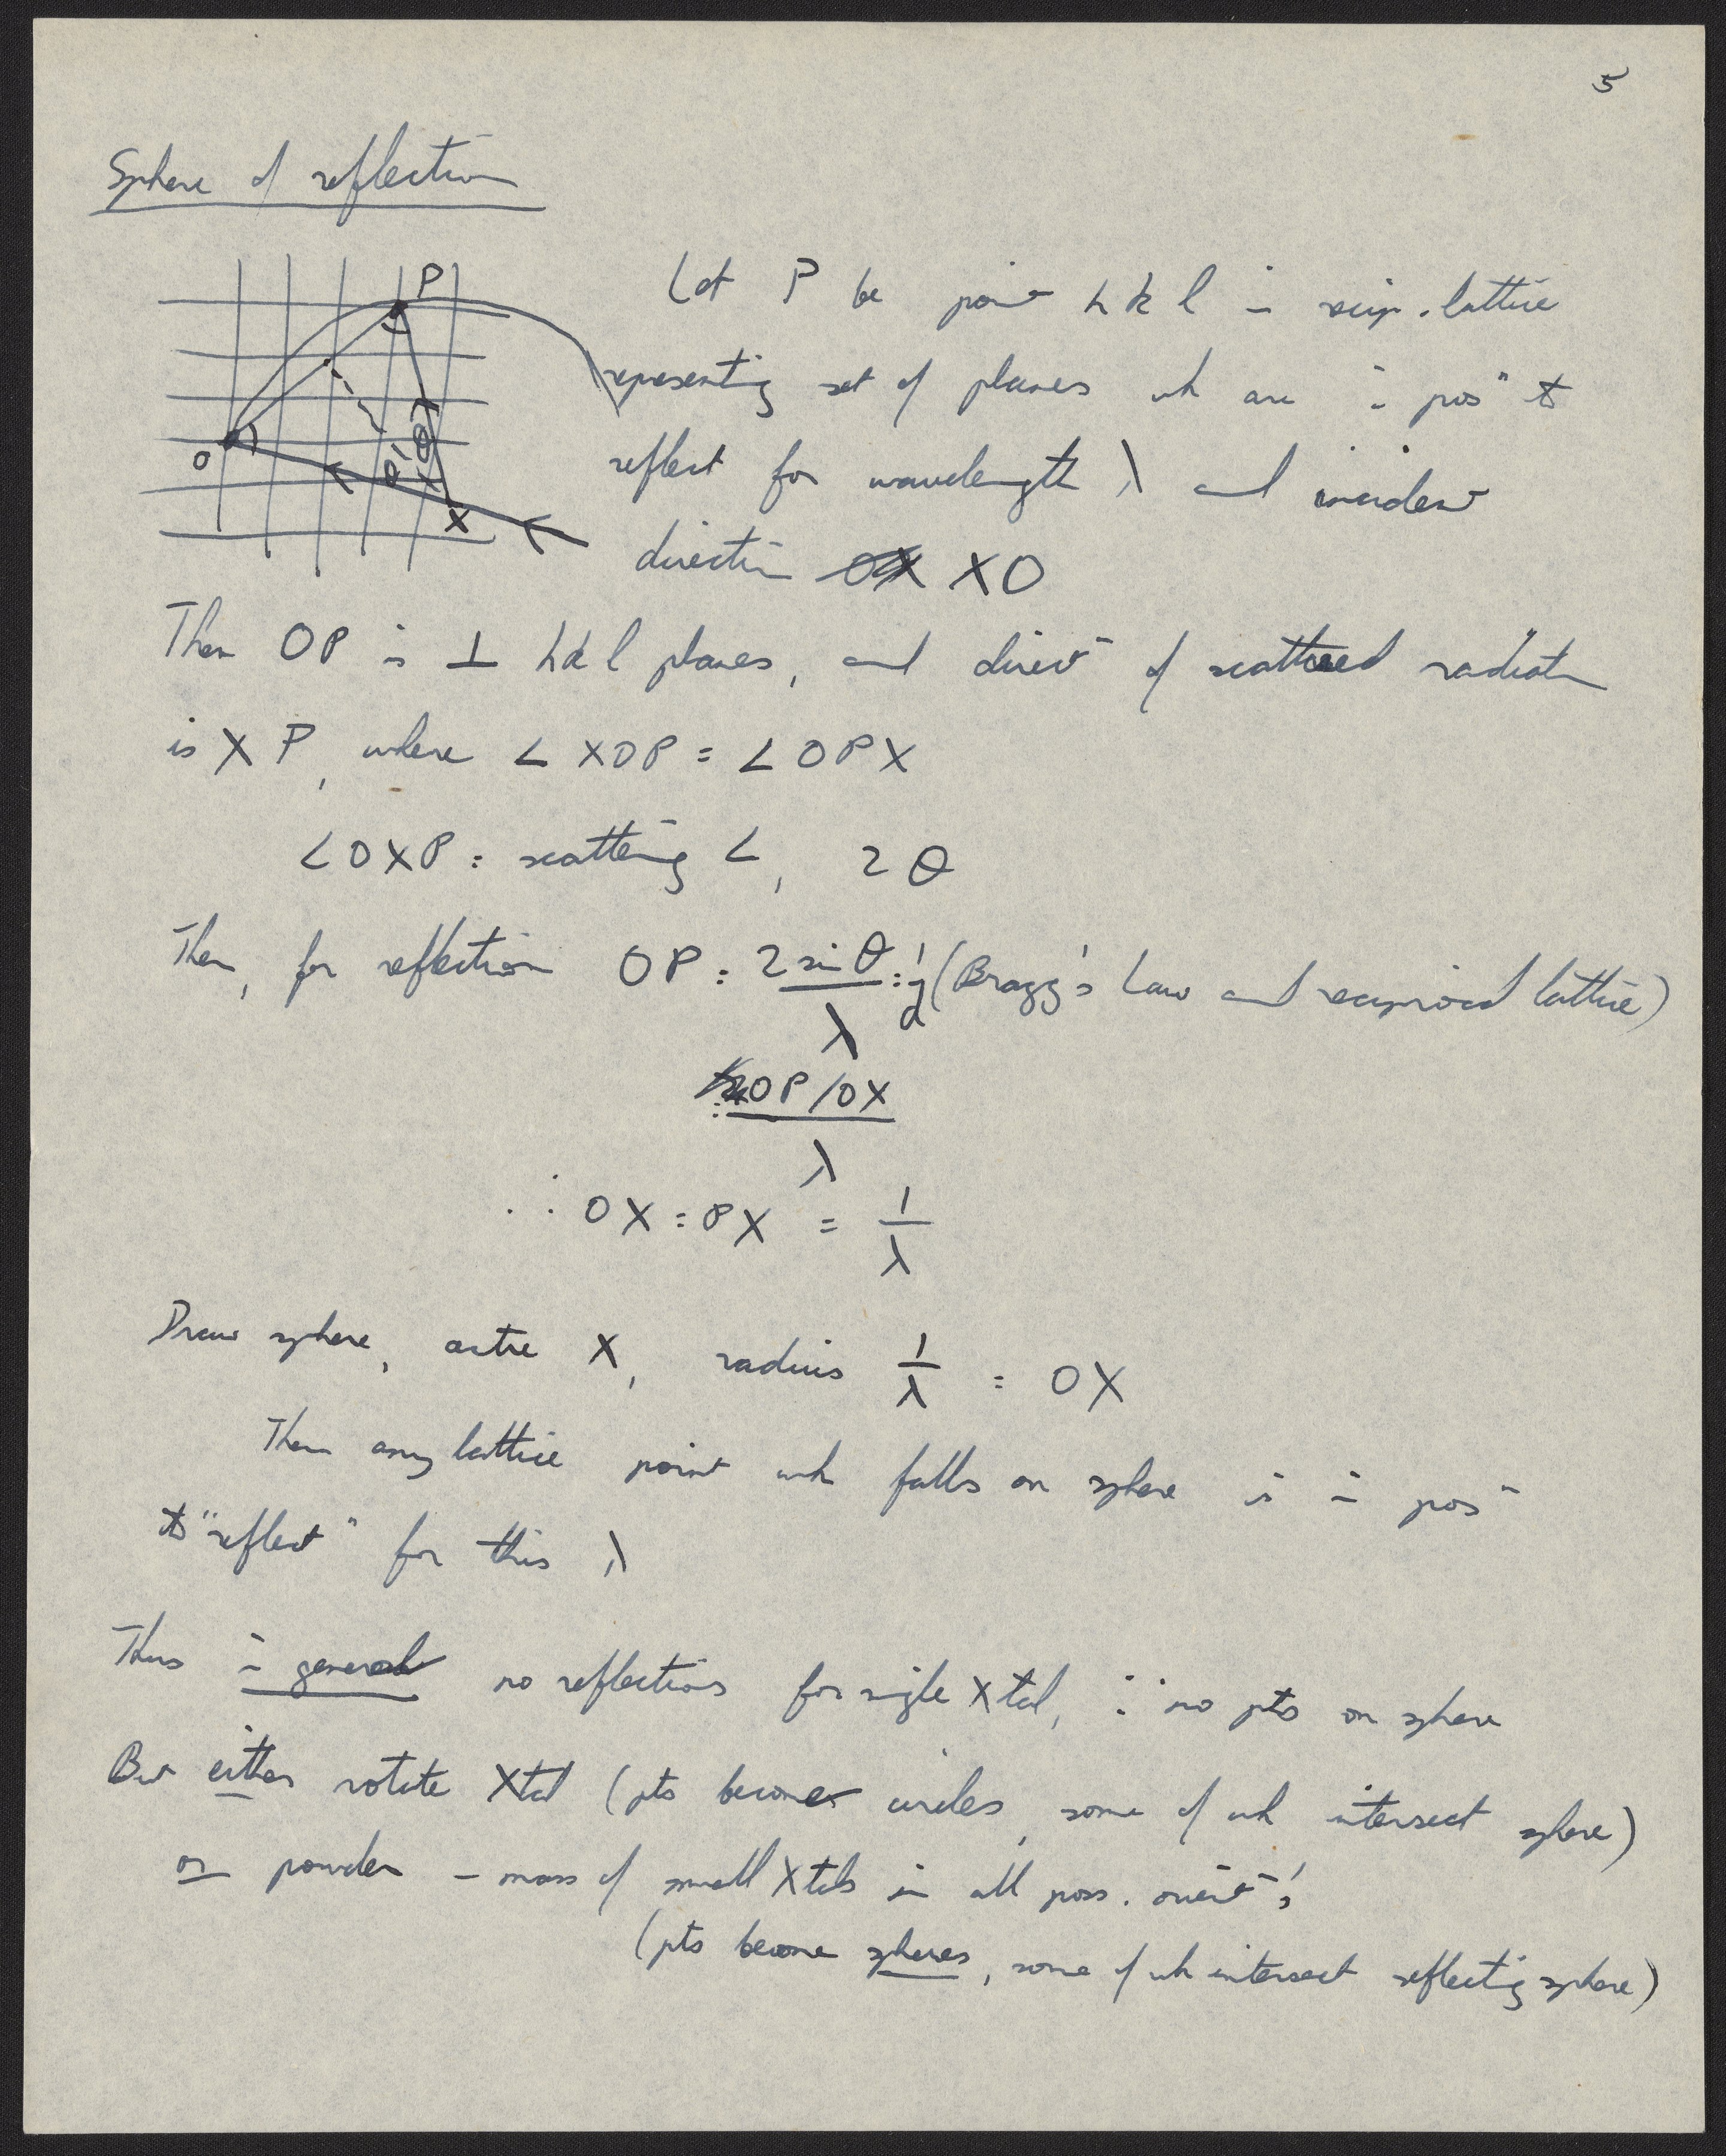 5
Sphere of reflection
P
O
θ
θ
X
Let P be point h k l in recip. lattice
representing set of planes wh are in posⁿ to
reflect for wavelength λ and incident
direction OX XO
Then OP is ⊥ hkl planes, and direcᵗⁿ of scattered radiatⁿ
is XP, where ∠ XOP = ∠ OPX
∠OXP = scattering ∠, 2θ
Then, for reflection OP = 2 sin θ/λ = 1/d (Bragg's Law and reciprocal lattice)
= OP/OX / λ
∴ OX = PX = 1/λ
Draw sphere, centre X, radius 1/λ = OX
Then any lattice point wh falls on sphere is in posⁿ
to "reflect" for this λ
Thus in general no reflections for single Xtal, ∵ no pts on sphere
But either rotate Xtal (pts become circles, some of wh intersect sphere)
or powder - mass of small Xtals in all poss. orientⁿˢ
(pts become spheres, some of wh intersect reflecting sphere)